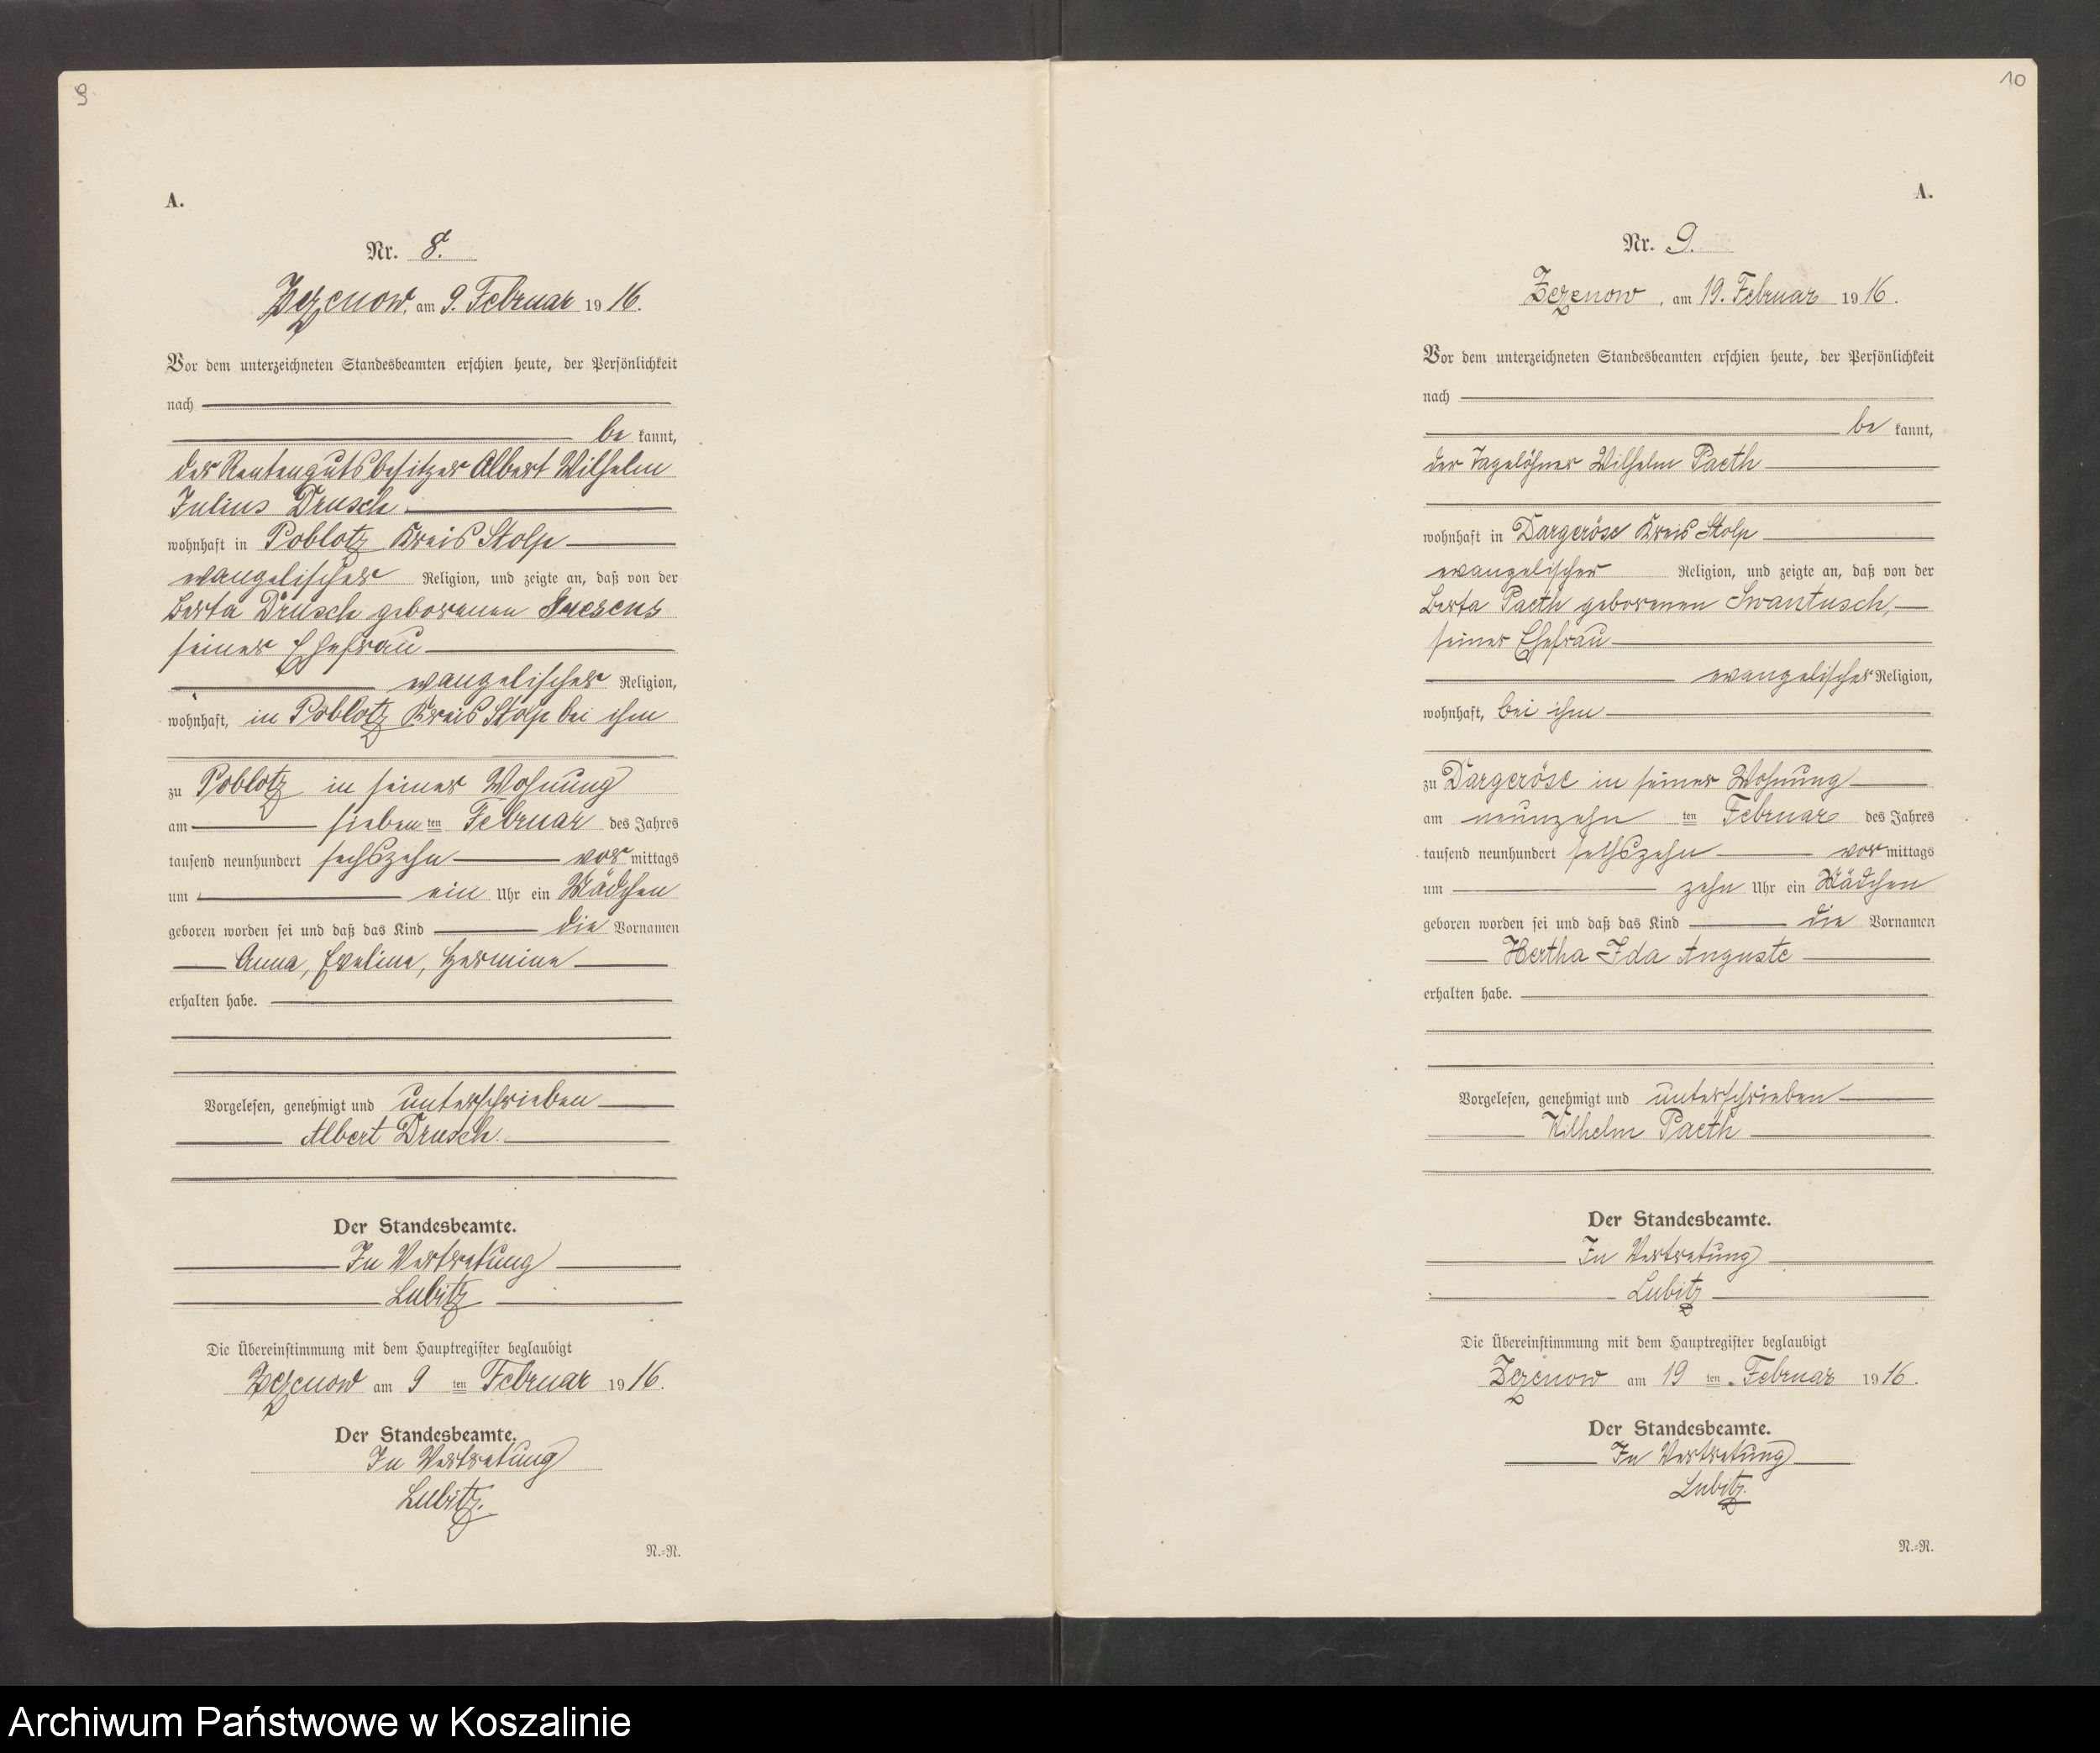 9
A.
Nr. 8.
Zezenow, am 9. Februar 1916.
Vor dem unterzeichneten Standesbeamten erschien heute, der Persönlichkeit
nach
be kannt,
der Rentengutsbesitzer Albert Wilhelm
Julius Drusch
wohnhaft in Poblotz Kreis Stolp
evangelischer Religion, und zeigte an, daß von der
Berta Drusch geborenen
seiner Ehefrau
evangelischer Religion,
wohnhaft, in Poblotz Kreis Stolp bei ihm
zu Poblotz in seiner Wohnung
am sieben ten Februar des Jahres
tausend neunhundert sechszehn vor mittags
um ein Uhr ein Mädchen
geboren worden sei und daß das Kind die Vornamen
Anna, Eveline, Hermine
erhalten habe.
Vorgelesen, genehmigt und unterschrieben
Albert Drusch.
Der Standesbeamte.
In Vertretung
Lubitz
Die Übereinstimmung mit dem Hauptregister beglaubigt
Zezenow am 9 ten Februar 1916.
Der Standesbeamte.
In Vertretung
Lubitz.
N.=R.
10
A.
Nr. 9.
Zezenow, am 19. Februar 1916.
Vor dem unterzeichneten Standesbeamten erschien heute, der Persönlichkeit
nach
be kannt,
der Tagelöhner Wilhelm Paeth
wohnhaft in Dargeröse Kreis Stolp
evangelischer Religion, und zeigte an, daß von der
Berta Paeth geborenen Swantusch,
seiner Ehefrau
evangelischer Religion,
wohnhaft, bei ihm
zu Dargeröse in seiner Wohnung
am neunzehn ten Februar des Jahres
tausend neunhundert sechszehn vor mittags
um zehn Uhr ein Mädchen
geboren worden sei und daß das Kind die Vornamen
Hertha Ida Auguste
erhalten habe.
Vorgelesen, genehmigt und unterschrieben
Wilhelm Paeth
Der Standesbeamte.
In Vertretung
Lubitz
Die Übereinstimmung mit dem Hauptregister beglaubigt
Zezenow am 19 ten Februar 1916.
Der Standesbeamte.
In Vertretung
Lubitz.
N.=R.
Archiwum Państwowe w Koszalinie